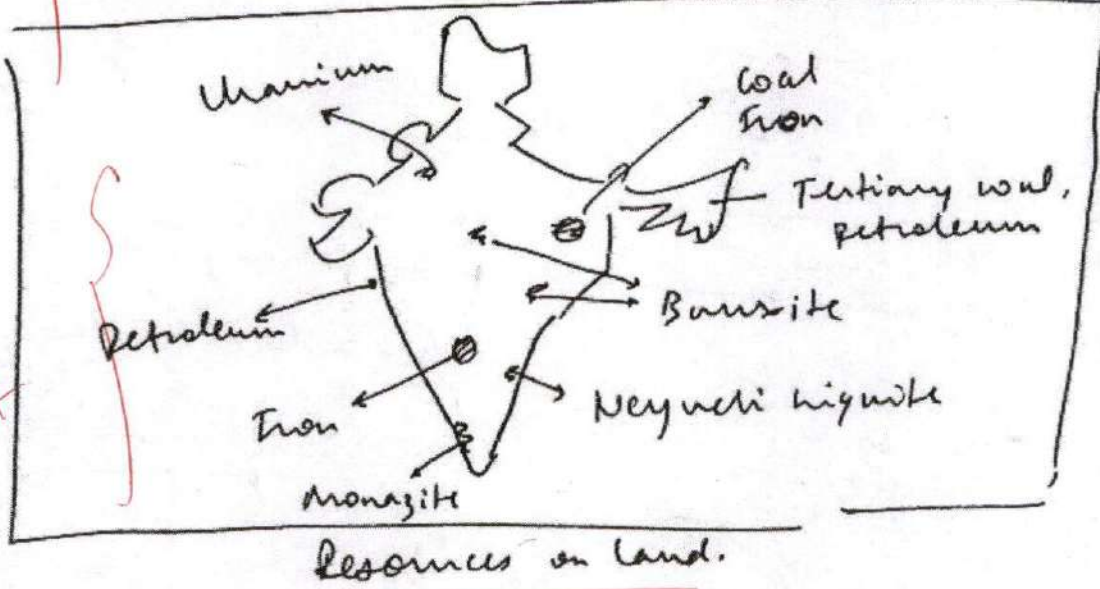 Uranium
Coal
Iron
Tertiary coal,
petroleum
Petroleum
Bauxite
Iron
Neyveli lignite
Monazite
Resources on land.